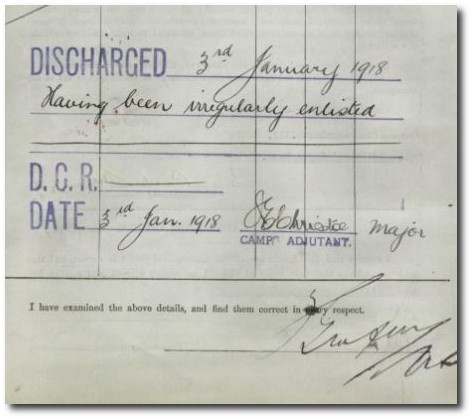 DISCHARGED 3rd January 1918
Having been irregularly enlisted
D. C. R.
DATE 3rd Jan. 1918 Christie Major
CAMP ADJUTANT.
I have examined the above details, and find them correct in every respect.